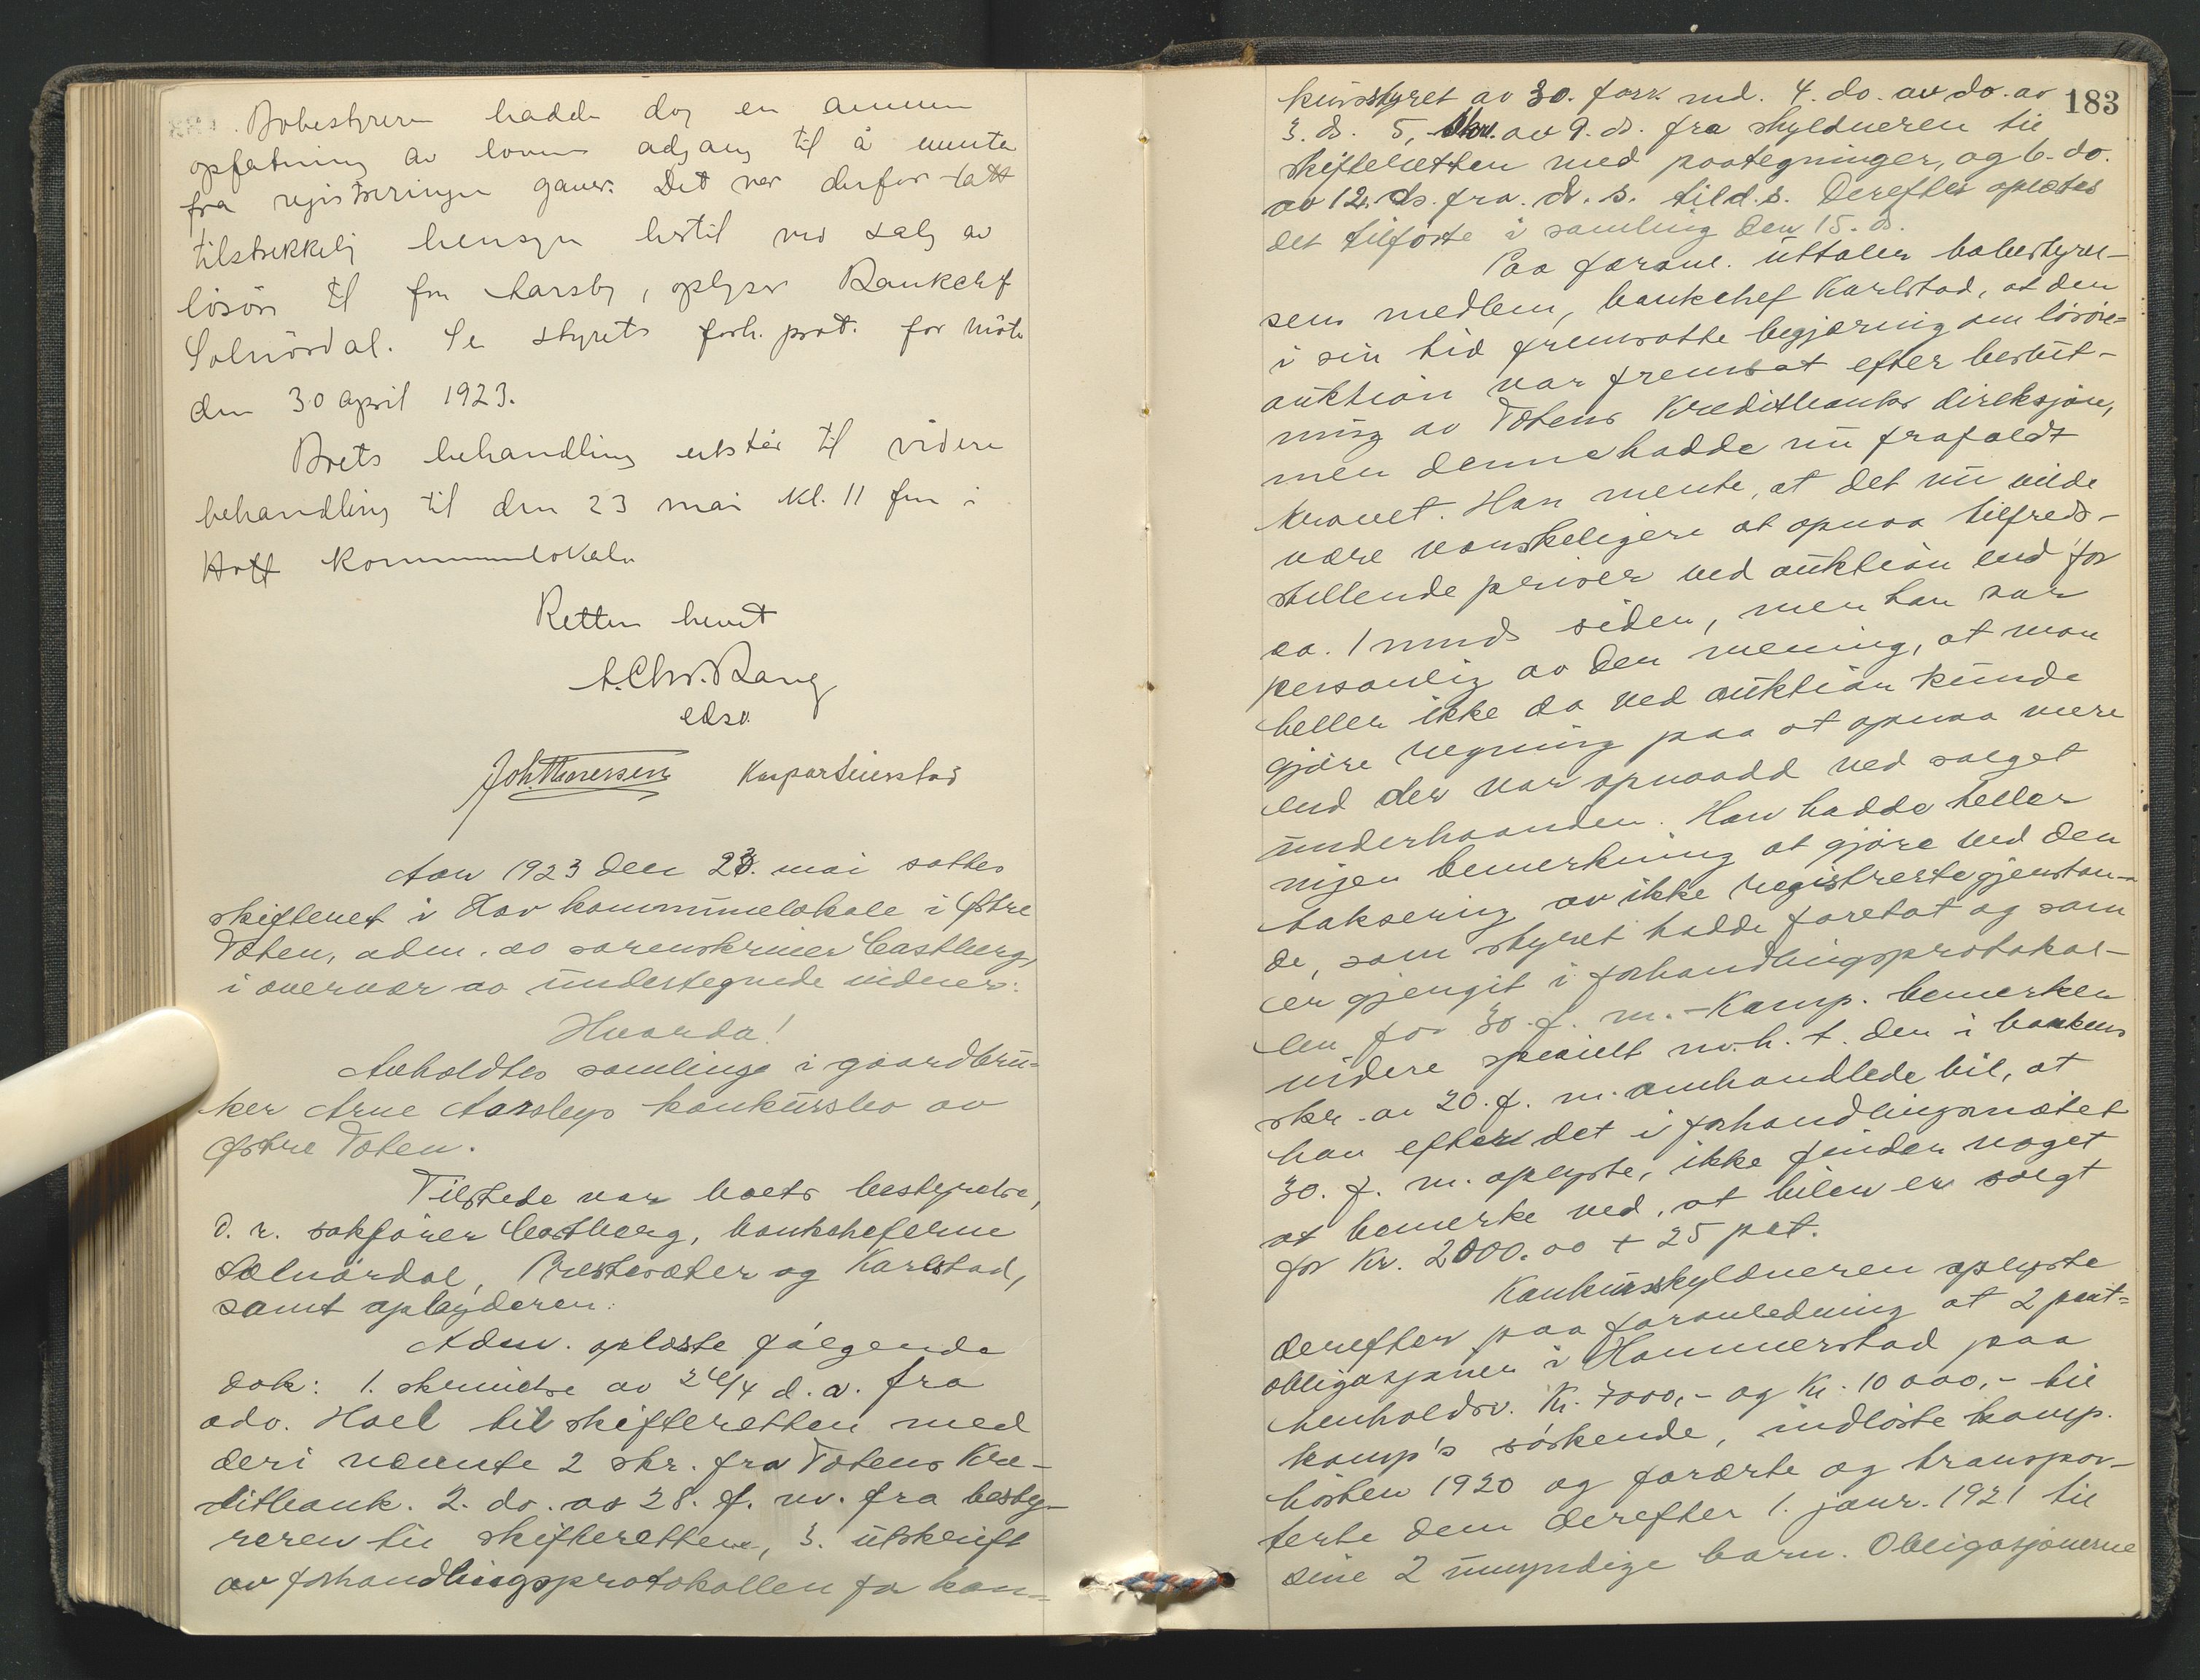 Bobestyreren hadde dog en annen
opfatning av lovens adgang til å unnta
fra registreringen gaver. Det var derfor tatt
tilstrekkelig hensyn hertil ved salg av
løsøre til fru Aarsby, oplyser Bankchef
Solnørdal. Se styrets forh. prot. for møte
den 30 april 1923.
Boets behandling utstår til videre
behandling til den 23 mai kl. 11 fm i
Hoff kommunelokale
Retten hevet
A. Chr. Bang
edsv.
Joh. Thoresen Kaspar Linerstad
Aar 1923 den 23. mai sattes
skifteret i Hov kommunelokale i Østre
Toten, adm. av sorenskriver Castberg,
i overvær av undertegnede vidner:
Hvorda!
Avholdtes samling i gaardbru-
ker Arne Aarsbys konkursbo av
Østre Toten.
Tilstede var boets bestyrelse,
d. v. sakfører Castberg, bankcheferne
Solnørdal, Prestesæter og Karlstad,
samt opbyderen.
Adm. oplæste følgende
dok: 1. skrivelse av 26/4 d. a. fra
adv. Hoel til skifteretten med
deri nævnte 2 skr. fra Totens Kre-
ditbank. 2. do. av 28. f. m. fra besty-
reren til skifteretten, 3. utskrift
av forhandlingsprotokollen for kon-
183
kursstyret av 30. fors. md. 4. do. av do. av
3. ds. 5, skr. av 9. ds. fra skyldneren til
skifteretten med paategninger, og 6. do.
av 12. ds. fra d. s. til d. s. Derefter oplæstes
det tilførte i samling den 15. ds.
Paa foranl. uttaler bobestyrel-
sens medlem, bankchef Karlstad, at den
i sin tid fremsatte begjæring om løsøre-
auktion var fremsat efter beslut-
ning av Totens Kreditbanks direksjon,
men denne hadde nu frafaldt
kravet. Han mente, at det nu vilde
være vanskeligere at opnaa tilfreds-
stillende priser ved auktion end for
ca. 1 mnd siden, men han var
personlig av den mening, at man
heller ikke da ved auktion kunde
gjøre regning paa at opnaa mere
end der var opnaadd ved salget
underhaanden. Han hadde heller
ingen bemerkning at gjøre ved den
taksering av ikke registrerte gjenstan-
de, som styret hadde foretat og som
er gjengit i forhandlingsprotokol-
len for 30. f. m. - Komp. bemerker
videre specielt m. h. t. den i bankens
skr. av 20. f. m. omhandlede bil, at
han efter det i forhandlingsmøtet
30. f. m. oplyste, ikke finder noget
at bemerke ved, at bilen er solgt
for Kr. 2000.00 + 25 pct.
Konkursskyldneren oplyste
derefter paa foranledning at 2 pant-
obligasjoner i Hammerstad paa
henholdsv. Kr. 7000,- og Kr. 10 000,- til
komp's søskende, indløste komp.
høsten 1920 og forærte og transpor-
terte dem derefter 1. janr. 1921 til
sine 2 umyndige barn. Obligasjonerne